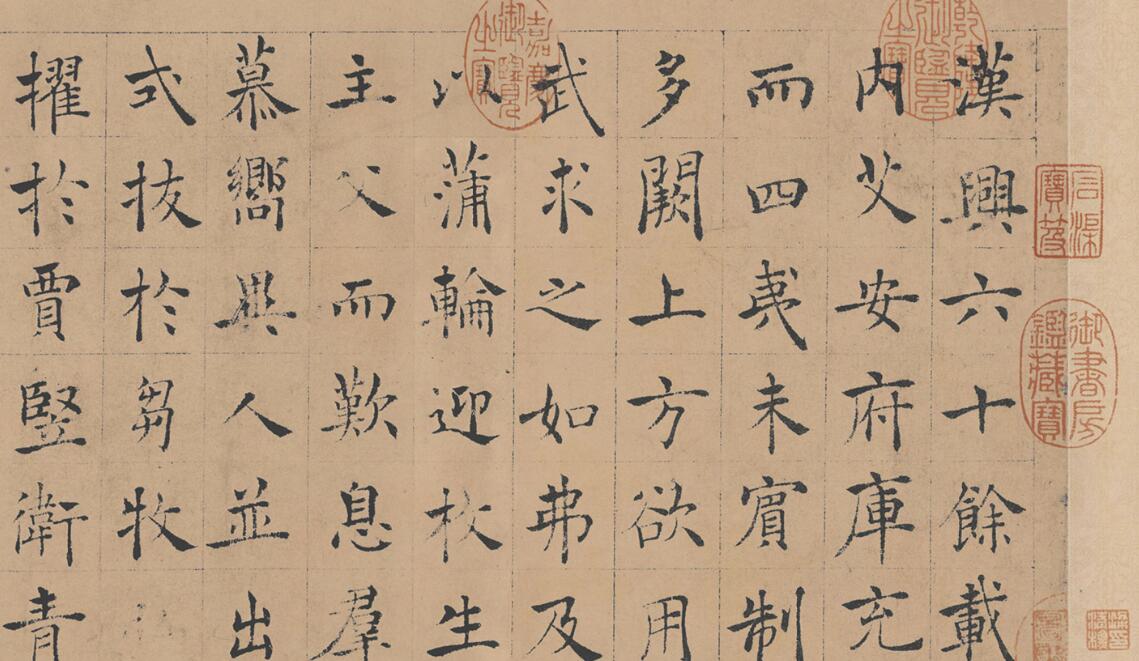 石渠寶笈
御書房鑑藏寶
乾隆御覽之寶
漢興六十餘載
內艾安府庫充
而四夷未賓制
多闕上方欲用
嘉慶御覽之寶
武求之如弗及
以蒲輪迎枚生
主父而歎息羣
慕嚮異人並出
式拔於芻牧
擢於賈豎衛青